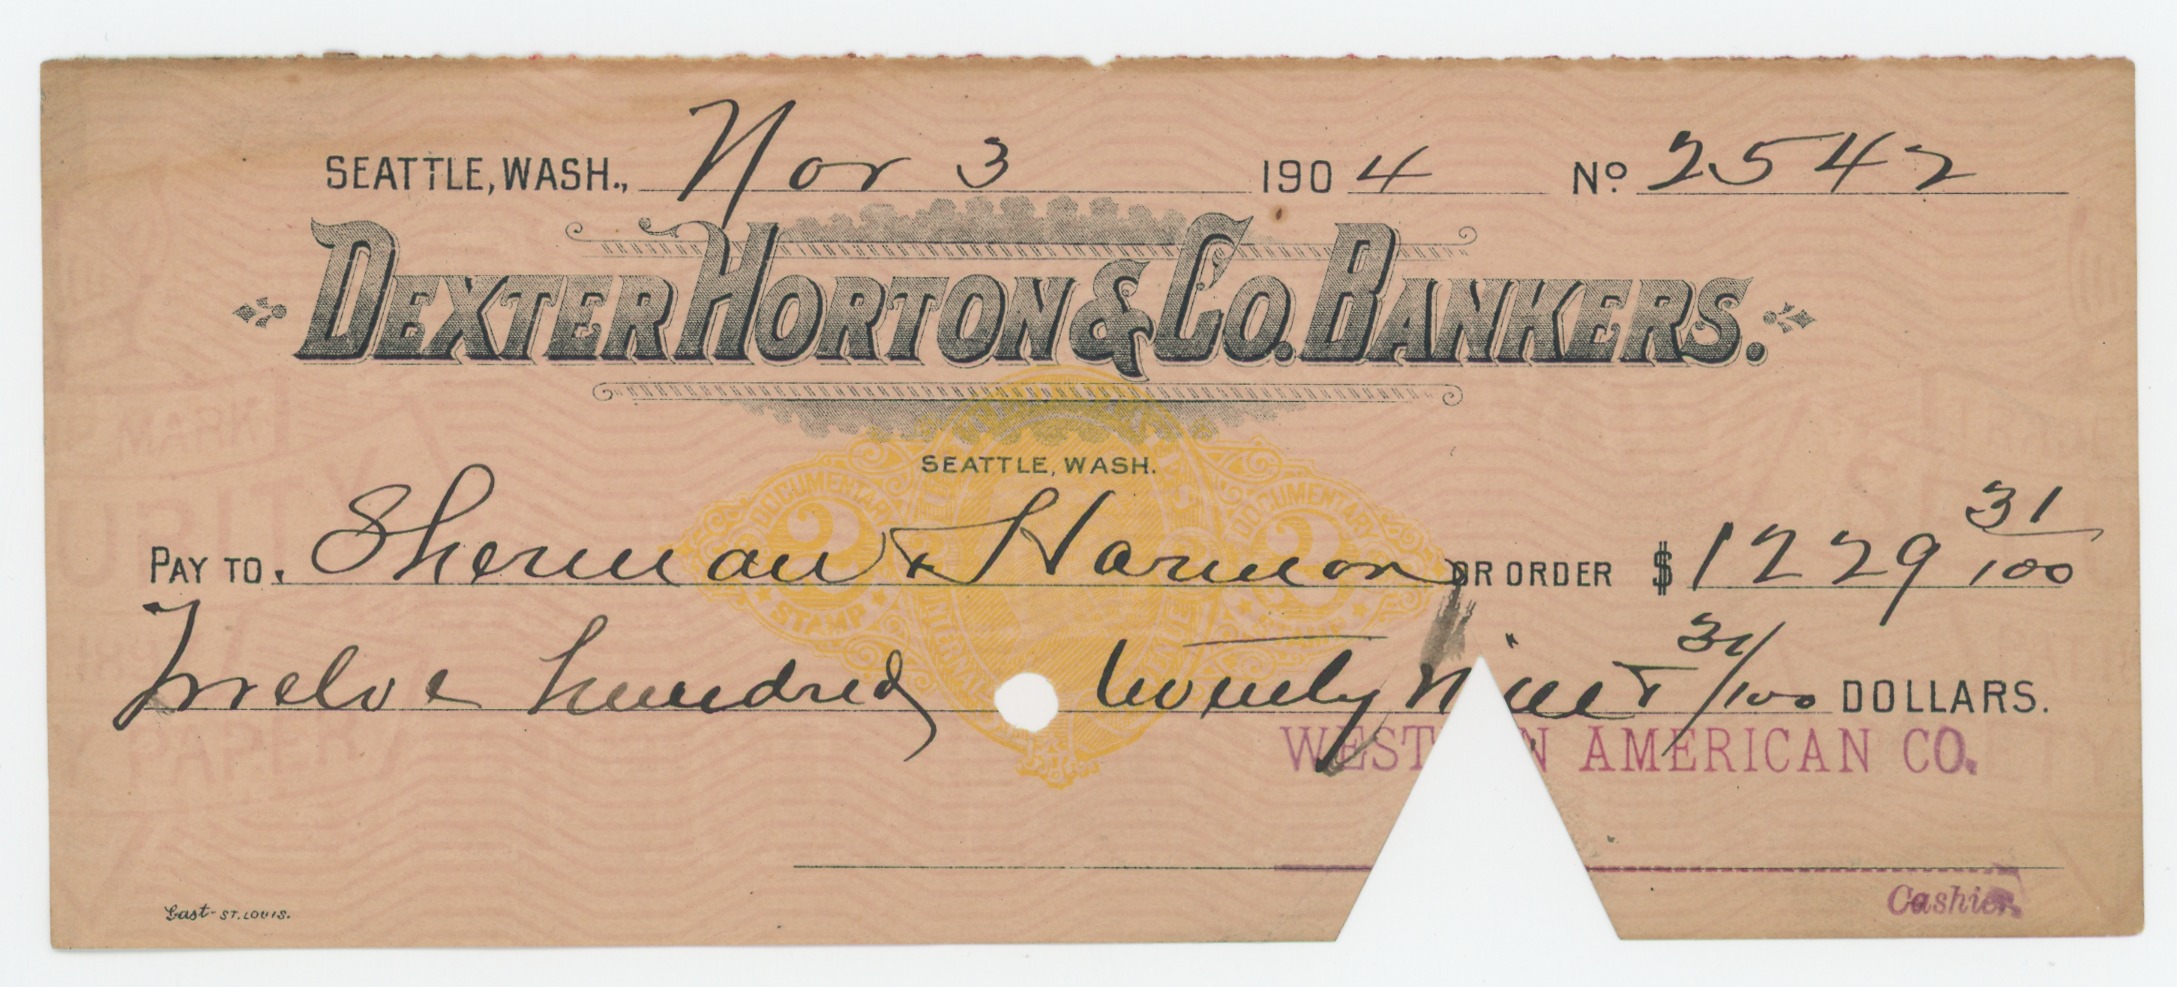 SEATTLE, WASH., Nov 3 1904 Nº 2542
DEXTER HORTON & CO. BANKERS.
SEATTLE, WASH.
DOCUMENTARY 2 STAMP
DOCUMENTARY 2
INTERNAL
PAY TO. Sherman & Harmon OR ORDER $1229 31/100
Twelve hundred twenty nine & 31/100 DOLLARS.
WEST N AMERICAN CO.
Cashier.
Gast - ST. LOUIS.